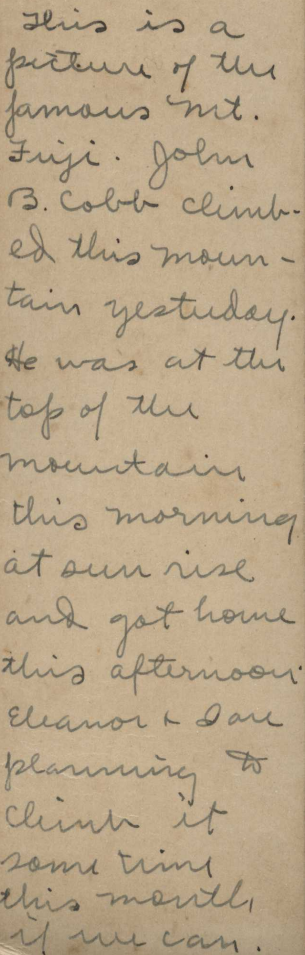 This is a
picture of the
famous Mt.
Fuji. John
B. Cobb climb-
ed this moun-
tain yesterday.
He was at the
top of the
mountain
this morning
at sun rise
and got home
this afternoon.
Eleanor & I are
planning to
climb it
some time
this month,
if we can.